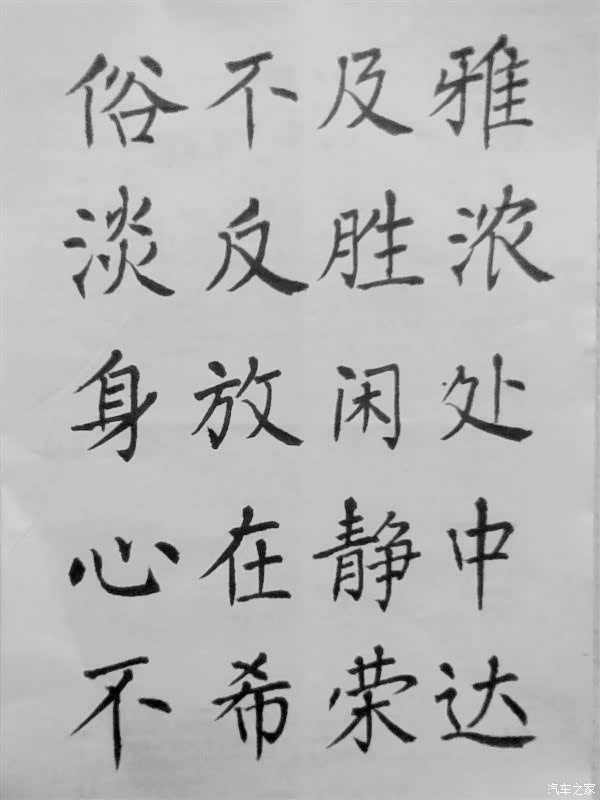 俗不及雅
淡反胜浓
身放闲处
心在静中
不希荣达
汽车之家